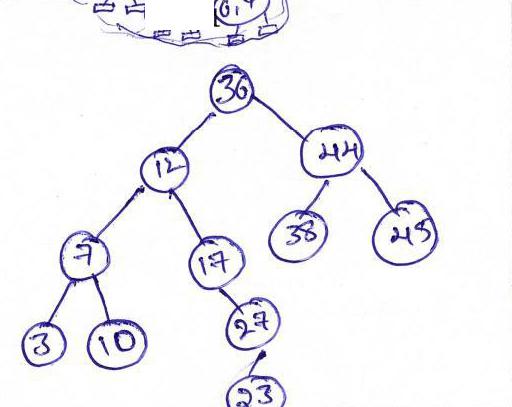 36
12 44
7 17 38 45
3 10 27
23